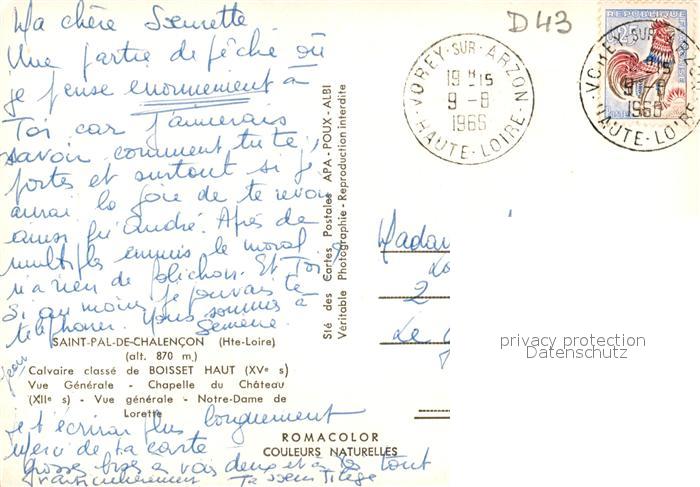 D43
Ma chère Soeurette
Une partie de pêche où
je pense enormement à
Toi car J'aimerais
savoir comment tu te
portes et surtout si je
aurai la joie de te revoir
ainsi qu'André. Après de
multiples ennuis le moral
n'a rien de folichon. Et Toi
Si au moins je pouvais te
téléphoner. Nous sommes à
Semène.
SAINT-PAL-DE-CHALENÇON (Hte-Loire)
(alt. 870 m.)
Calvaire classé de BOISSET HAUT (XVe s)
Vue Générale - Chapelle du Château
(XIIe s) - Vue générale - Notre-Dame de
Lorette
je t'écrirai plus longuement
Merci de ta carte
grosses bises à vous deux et à toi tout
particulièrement Ta soeur
ROMACOLOR
COULEURS NATURELLES
Sté des Cartes Postales APA-POUX-ALBI
Véritable Photographie - Reproduction interdite
VOREY-SUR-ARZON
19H15
9-8
1965
HAUTE-LOIRE
REPUBLIQUE
0,25
VOREY-SUR-ARZON
9-8
1965
HAUTE-LOIRE
Madam
2
Le
privacy protection
Datenschutz